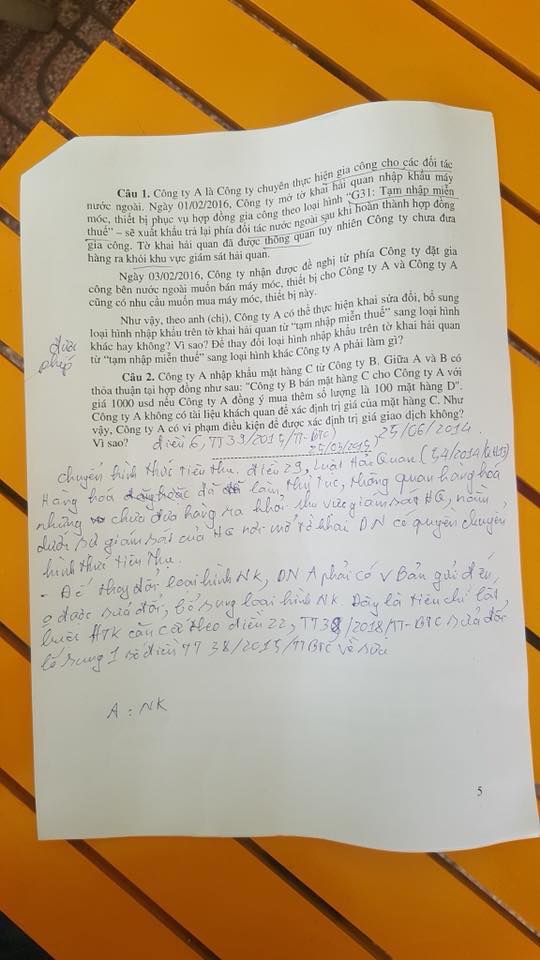 Câu 1. Công ty A là Công ty chuyên thực hiện gia công cho các đối tác
nước ngoài. Ngày 01/02/2016, Công ty mở tờ khai hải quan nhập khẩu máy
móc, thiết bị phục vụ hợp đồng gia công theo loại hình "G31: Tạm nhập miễn
thuế" – sẽ xuất khẩu trả lại phía đối tác nước ngoài sau khi hoàn thành hợp đồng
gia công. Tờ khai hải quan đã được thông quan tuy nhiên Công ty chưa đưa
hàng ra khỏi khu vực giám sát hải quan.
Ngày 03/02/2016, Công ty nhận được đề nghị từ phía Công ty đặt gia
công bên nước ngoài muốn bán máy móc, thiết bị cho Công ty A và Công ty A
cũng có nhu cầu muốn mua máy móc, thiết bị này.
Như vậy, theo anh (chị), Công ty A có thể thực hiện khai sửa đổi, bổ sung
loại hình nhập khẩu trên tờ khai hải quan từ "tạm nhập miễn thuế" sang loại hình
khác hay không? Vì sao? Để thay đổi loại hình nhập khẩu trên tờ khai hải quan
từ "tạm nhập miễn thuế" sang loại hình khác Công ty A phải làm gì?
được
phép
Câu 2. Công ty A nhập khẩu mặt hàng C từ Công ty B. Giữa A và B có
thỏa thuận tại hợp đồng như sau: "Công ty B bán mặt hàng C cho Công ty A với
giá 1000 usd nếu Công ty A đồng ý mua thêm số lượng là 100 mặt hàng D".
Công ty A không có tài liệu khách quan để xác định trị giá của mặt hàng C. Như
vậy, Công ty A có vi phạm điều kiện để được xác định trị giá giao dịch không?
Vì sao?
điều 6, TT39/2015/TT-BTC)
25/03/2015
25/06/2014
chuyển hình thức tiêu thụ. điều 29, Luật Hải Quan
Hàng hoá đã làm thủ tục, thông quan hàng hoá
nhưng chưa đưa hàng ra khỏi khu vực giám sát HQ, nằm
dưới sự giám sát của HQ nơi mở tờ khai DN có quyền chuyển
hình thức tiêu thụ.
- Để thay đổi loại hình NK, DN A phải có v Bản gửi đến,
được sửa đổi, bổ sung loại hình NK. Đây là tiêu chí bắt
buộc căn cứ theo điều 22, TT38/2018/TT-BTC sửa đổi
bổ sung 1 số điều TT 38/2015/TT BTC về sửa
A : NK
5